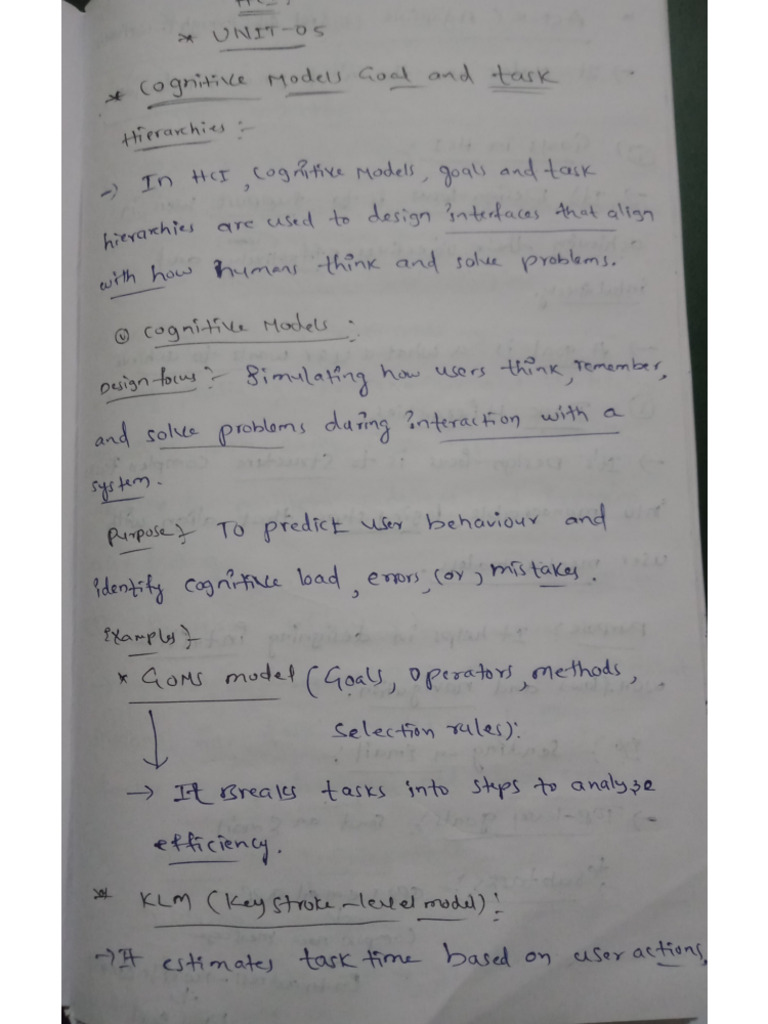 * UNIT-05
* Cognitive Models Goal and task
Hierarchies :-
-> In HCI, Cognitive Models, goals and task
hierarchies are used to design interfaces that align
with how humans think and solve problems.
Cognitive Models :
Design focus :- Simulating how users think, remember,
and solve problems during interaction with a
system.
Purpose :- To predict user behaviour and
identify cognitive load, errors, (or) mistakes.
Examples :-
* GOMS model (Goals, Operators, methods,
Selection rules):
-> It Breaks tasks into steps to analyze
efficiency.
* KLM (Keystroke-level model):
-> It estimates task time based on user actions,